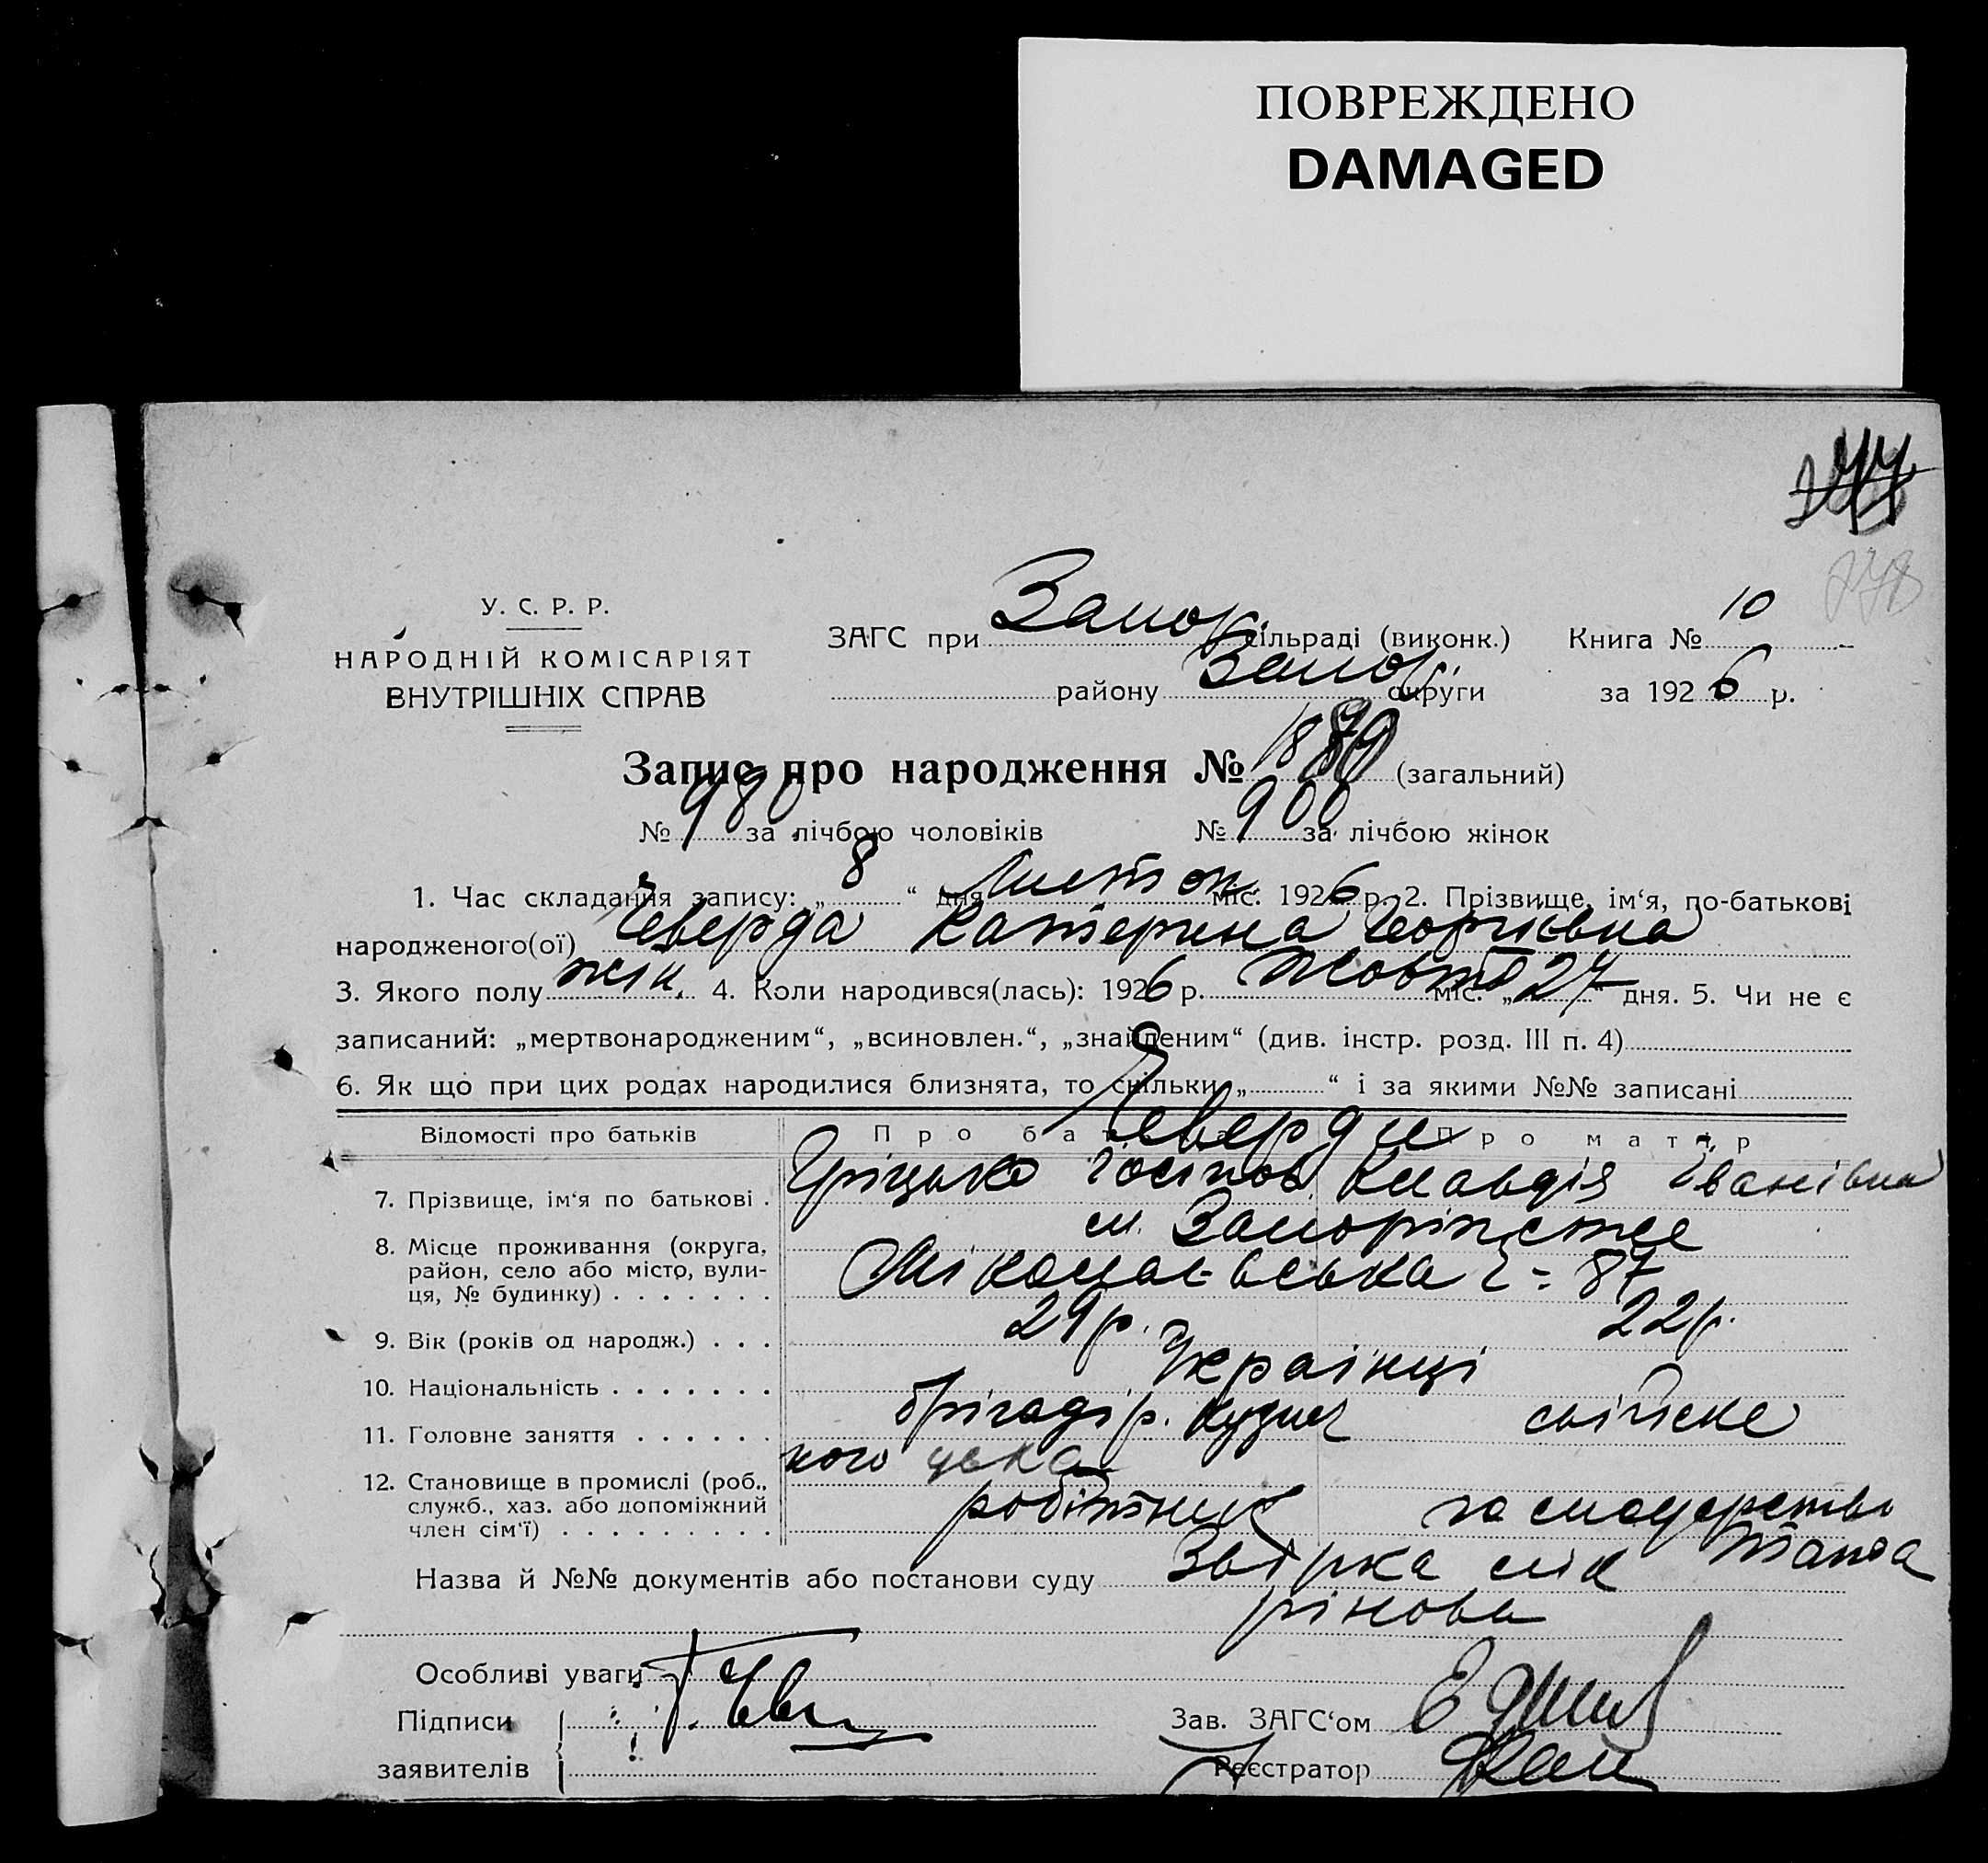 ПОВРЕЖДЕНО
DAMAGED
278
У. С. Р. Р.
НАРОДНІЙ КОМІСАРІЯТ
ВНУТРІШНІХ СПРАВ
ЗАГС при Запор. сільраді (виконк.) Книга № 10
району Запор. округи за 1926 р.
Запис про народження № 18 (загальний)
№ 980 за лічбою чоловіків № 900 за лічбою жінок
1. Час складання запису: „ 8 “ дня Листоп. міс. 1926 р. 2. Прізвище, ім‘я, по-батькові
народженого(ої) Чеверда Катерина Георгієвна
3. Якого полу жін. 4. Коли народився(лась): 1926 р. Жовтн міс. „ 27 “ дня. 5. Чи не є
записаний: „мертвонародженим“, „всиновлен.“, „знайденим“ (див. інстр. розд. III п. 4)
6. Як що при цих родах народилися близнята, то скільки „ “ і за якими №№ записані
Відомості про батьків Про батька Про матір
Чеверди
7. Прізвище, ім‘я по батькові . Гріцько Іосіпов. Клавдія Іванівна
8. Місце проживання (округа, район, село або місто, вули-ця, № будинку) . . . . . . . м. Запоріжжє
вська 87
9. Вік (років од народж.) . . . 29 р. 22 р.
10. Національність . . . . . . . Українці
11. Головне заняття . . . . . . брігадір. кузнеч свійске
ного цеха
12. Становище в промислі (роб., служб., хаз. або допоміжний член сім‘ї) . . . . . . . . . робітник господарство
Назва й №№ документів або постанови суду Звірка
Особливі уваги
Підписи заявителів Г. Чев
Зав. ЗАГС‘ом
Реєстратор